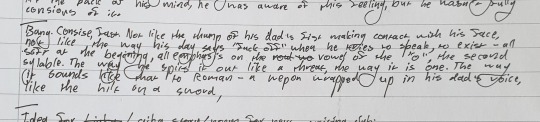 at the back of his mind, he was aware of this feeling, but he wasn't fully
consious of it.
Bang. Consise, fast. Not like the thump of his dad's fist making contact with his face,
not like the way his day says "Fuck off" when he tries to speak, to exist - all
soft at the begening, all emphasis on the vowel of the "o", the second
sylable. The way he spits it out like a threat, the way it is one. The way
it sounds like that to Roman - a wepon wrapped up in his dad's voice,
like the hilt on a sword,
Idea for